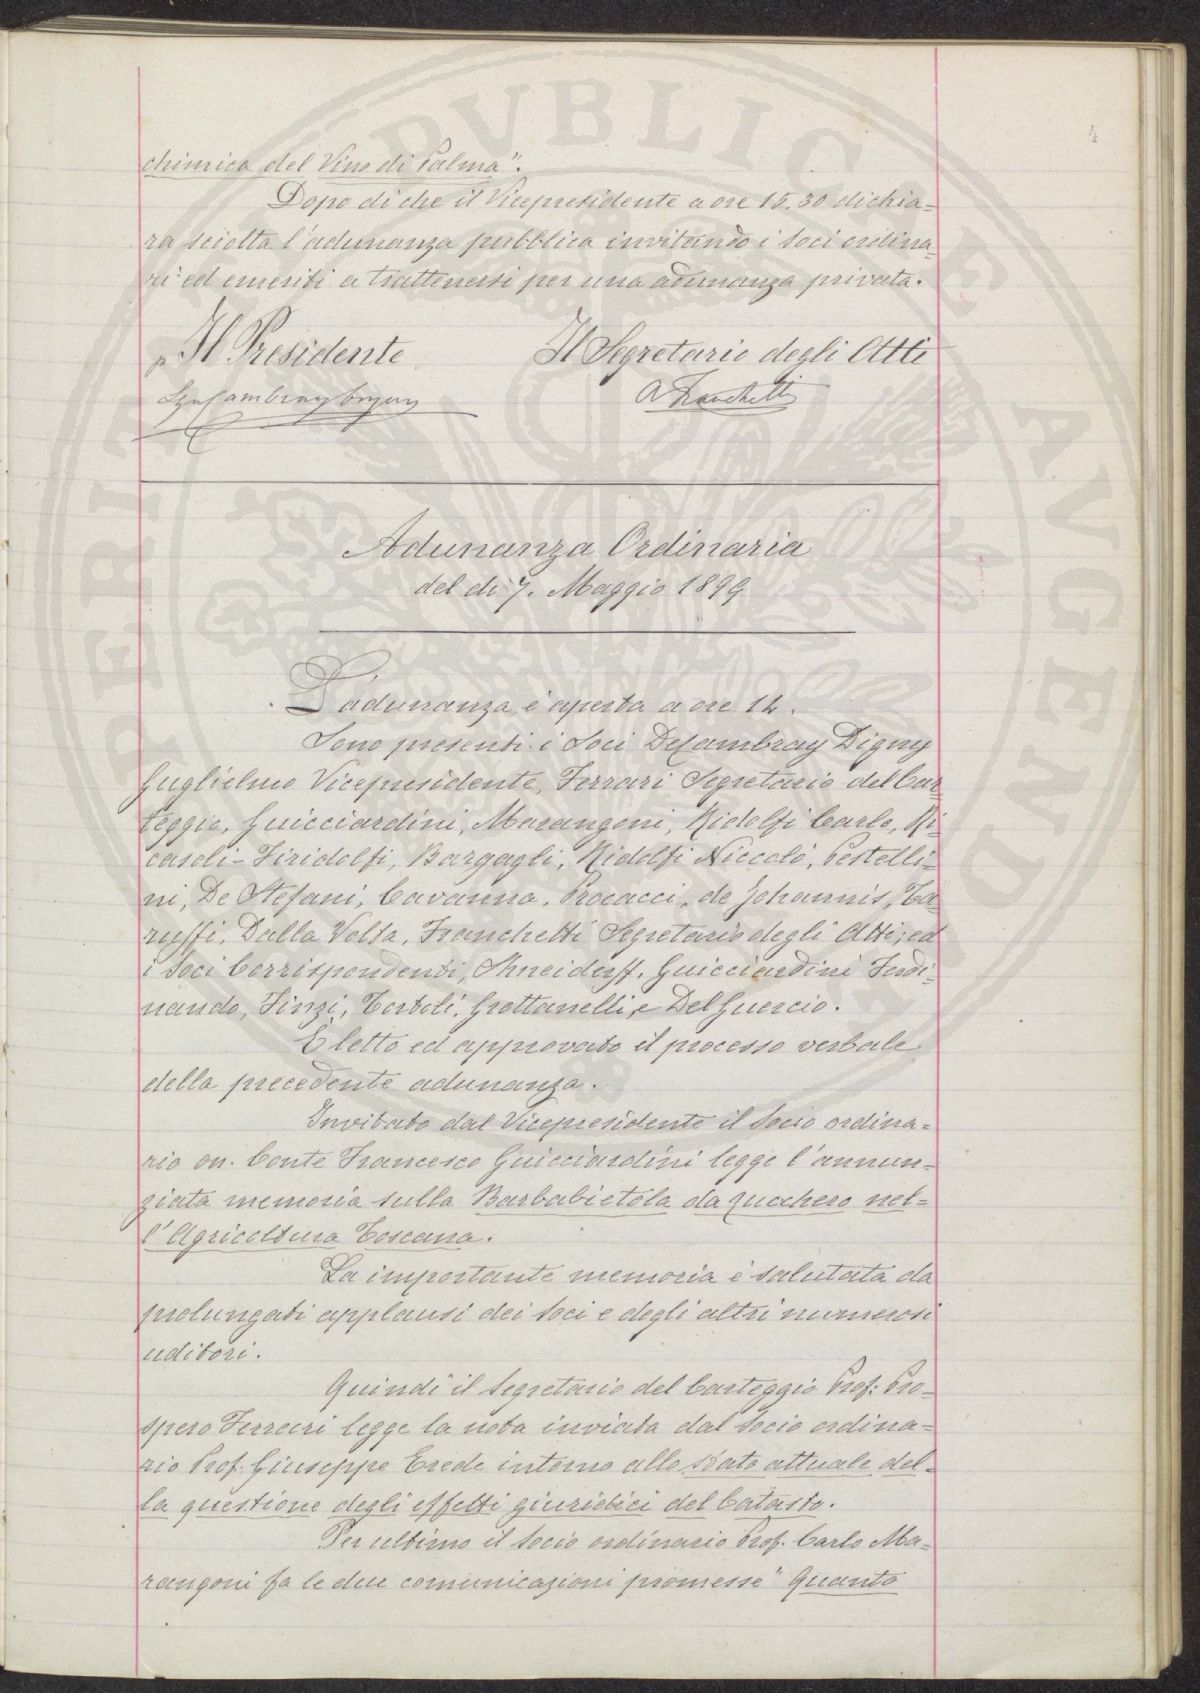 4
chimica del Vino di Palma".
Dopo di che il Vicepresidente a ore 15.30 dichia=
ra sciolta l'adunanza pubblica invitando i Soci ordina=
ri ed emeriti a trattenersi per una adunanza privata.
p. Il Presidente Il Segretario degli Atti
A Franchetti
Adunanza Ordinaria
del dì 7. Maggio 1899
L'adunanza è aperta a ore 14.
Sono presenti i Soci De Cambray Digny
Guglielmo Vicepresidente, Ferrari Segretario del Car=
teggio, Guicciardini, Marangoni, Ridolfi Carlo, Ri=
casoli-Firidolfi, Bargagli, Ridolfi Niccolò, Pestelli=
ni, De Stefani, Cavanna, Procacci, de Johannis, Ta=
ruffi, Dalla Volta, Franchetti Segretario degli Atti; ed
i Soci Corrispondenti, Shneiderff, Guicciardini Ferdi=
nando, Finzi, Bartoli, Grottanelli, e Del Guercio.
È letto ed approvato il processo verbale
della precedente adunanza.
Invitato dal Vicepresidente il Socio ordina=
rio on. Conte Francesco Guicciardini legge l'annun=
ziata memoria sulla Barbabietola da zucchero nel=
l'Agricoltura Toscana.
La importante memoria è salutata da
prolungati applausi dei Soci e degli altri numerosi
uditori.
Quindi il Segretario del Carteggio Prof: Pro=
spero Ferrari legge la nota inviata dal Socio ordina=
rio Prof. Giuseppe Erede intorno allo stato attuale del=
la questione degli effetti giuridici del Catasto.
Per ultimo il Socio ordinario Prof. Carlo Ma=
rangoni fa le due comunicazioni promesse "Quanto